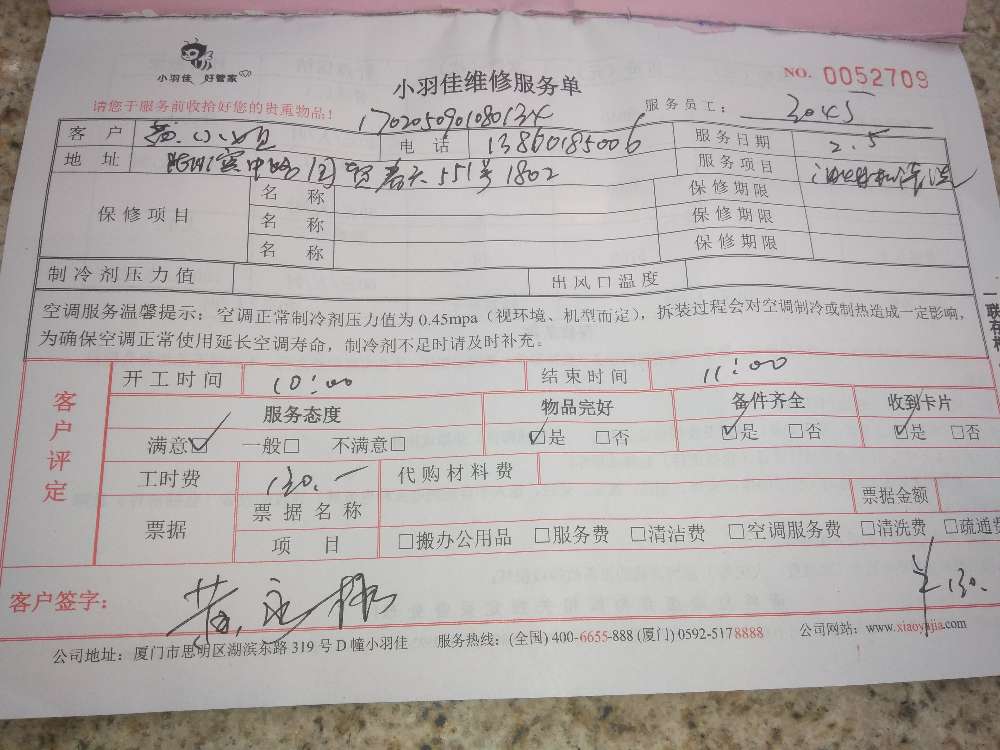 小羽佳 好管家
小羽佳维修服务单
NO. 0052709
请您于服务前收拾好您的贵重物品！
1702050901080134
服务员工： 3045
客户 电话 13860185006 服务日期 2.5
地址 国贸春天551号1802 服务项目 油烟机清洗
保修项目 名称 保修期限
名称 保修期限
名称 保修期限
制冷剂压力值 出风口温度
空调服务温馨提示：空调正常制冷剂压力值为0.45mpa（视环境、机型而定），拆装过程会对空调制冷或制热造成一定影响，
为确保空调正常使用延长空调寿命，制冷剂不足时请及时补充。
客户评定
开工时间 10:00 结束时间 11:00
服务态度 物品完好 备件齐全 收到卡片
满意☑ 一般□ 不满意□ ☑是 □否 ☑是 □否 ☑是 □否
工时费 130.— 代购材料费
票据 票据名称 票据金额
项目 □搬办公用品 □服务费 □清洁费 □空调服务费 □清洗费 □疏通费
客户签字： 黄永振 ¥130.
公司地址：厦门市思明区湖滨东路319号D幢小羽佳 服务热线：(全国) 400-6655-888 (厦门) 0592-5178888 公司网站：www.xiaoyujia.com